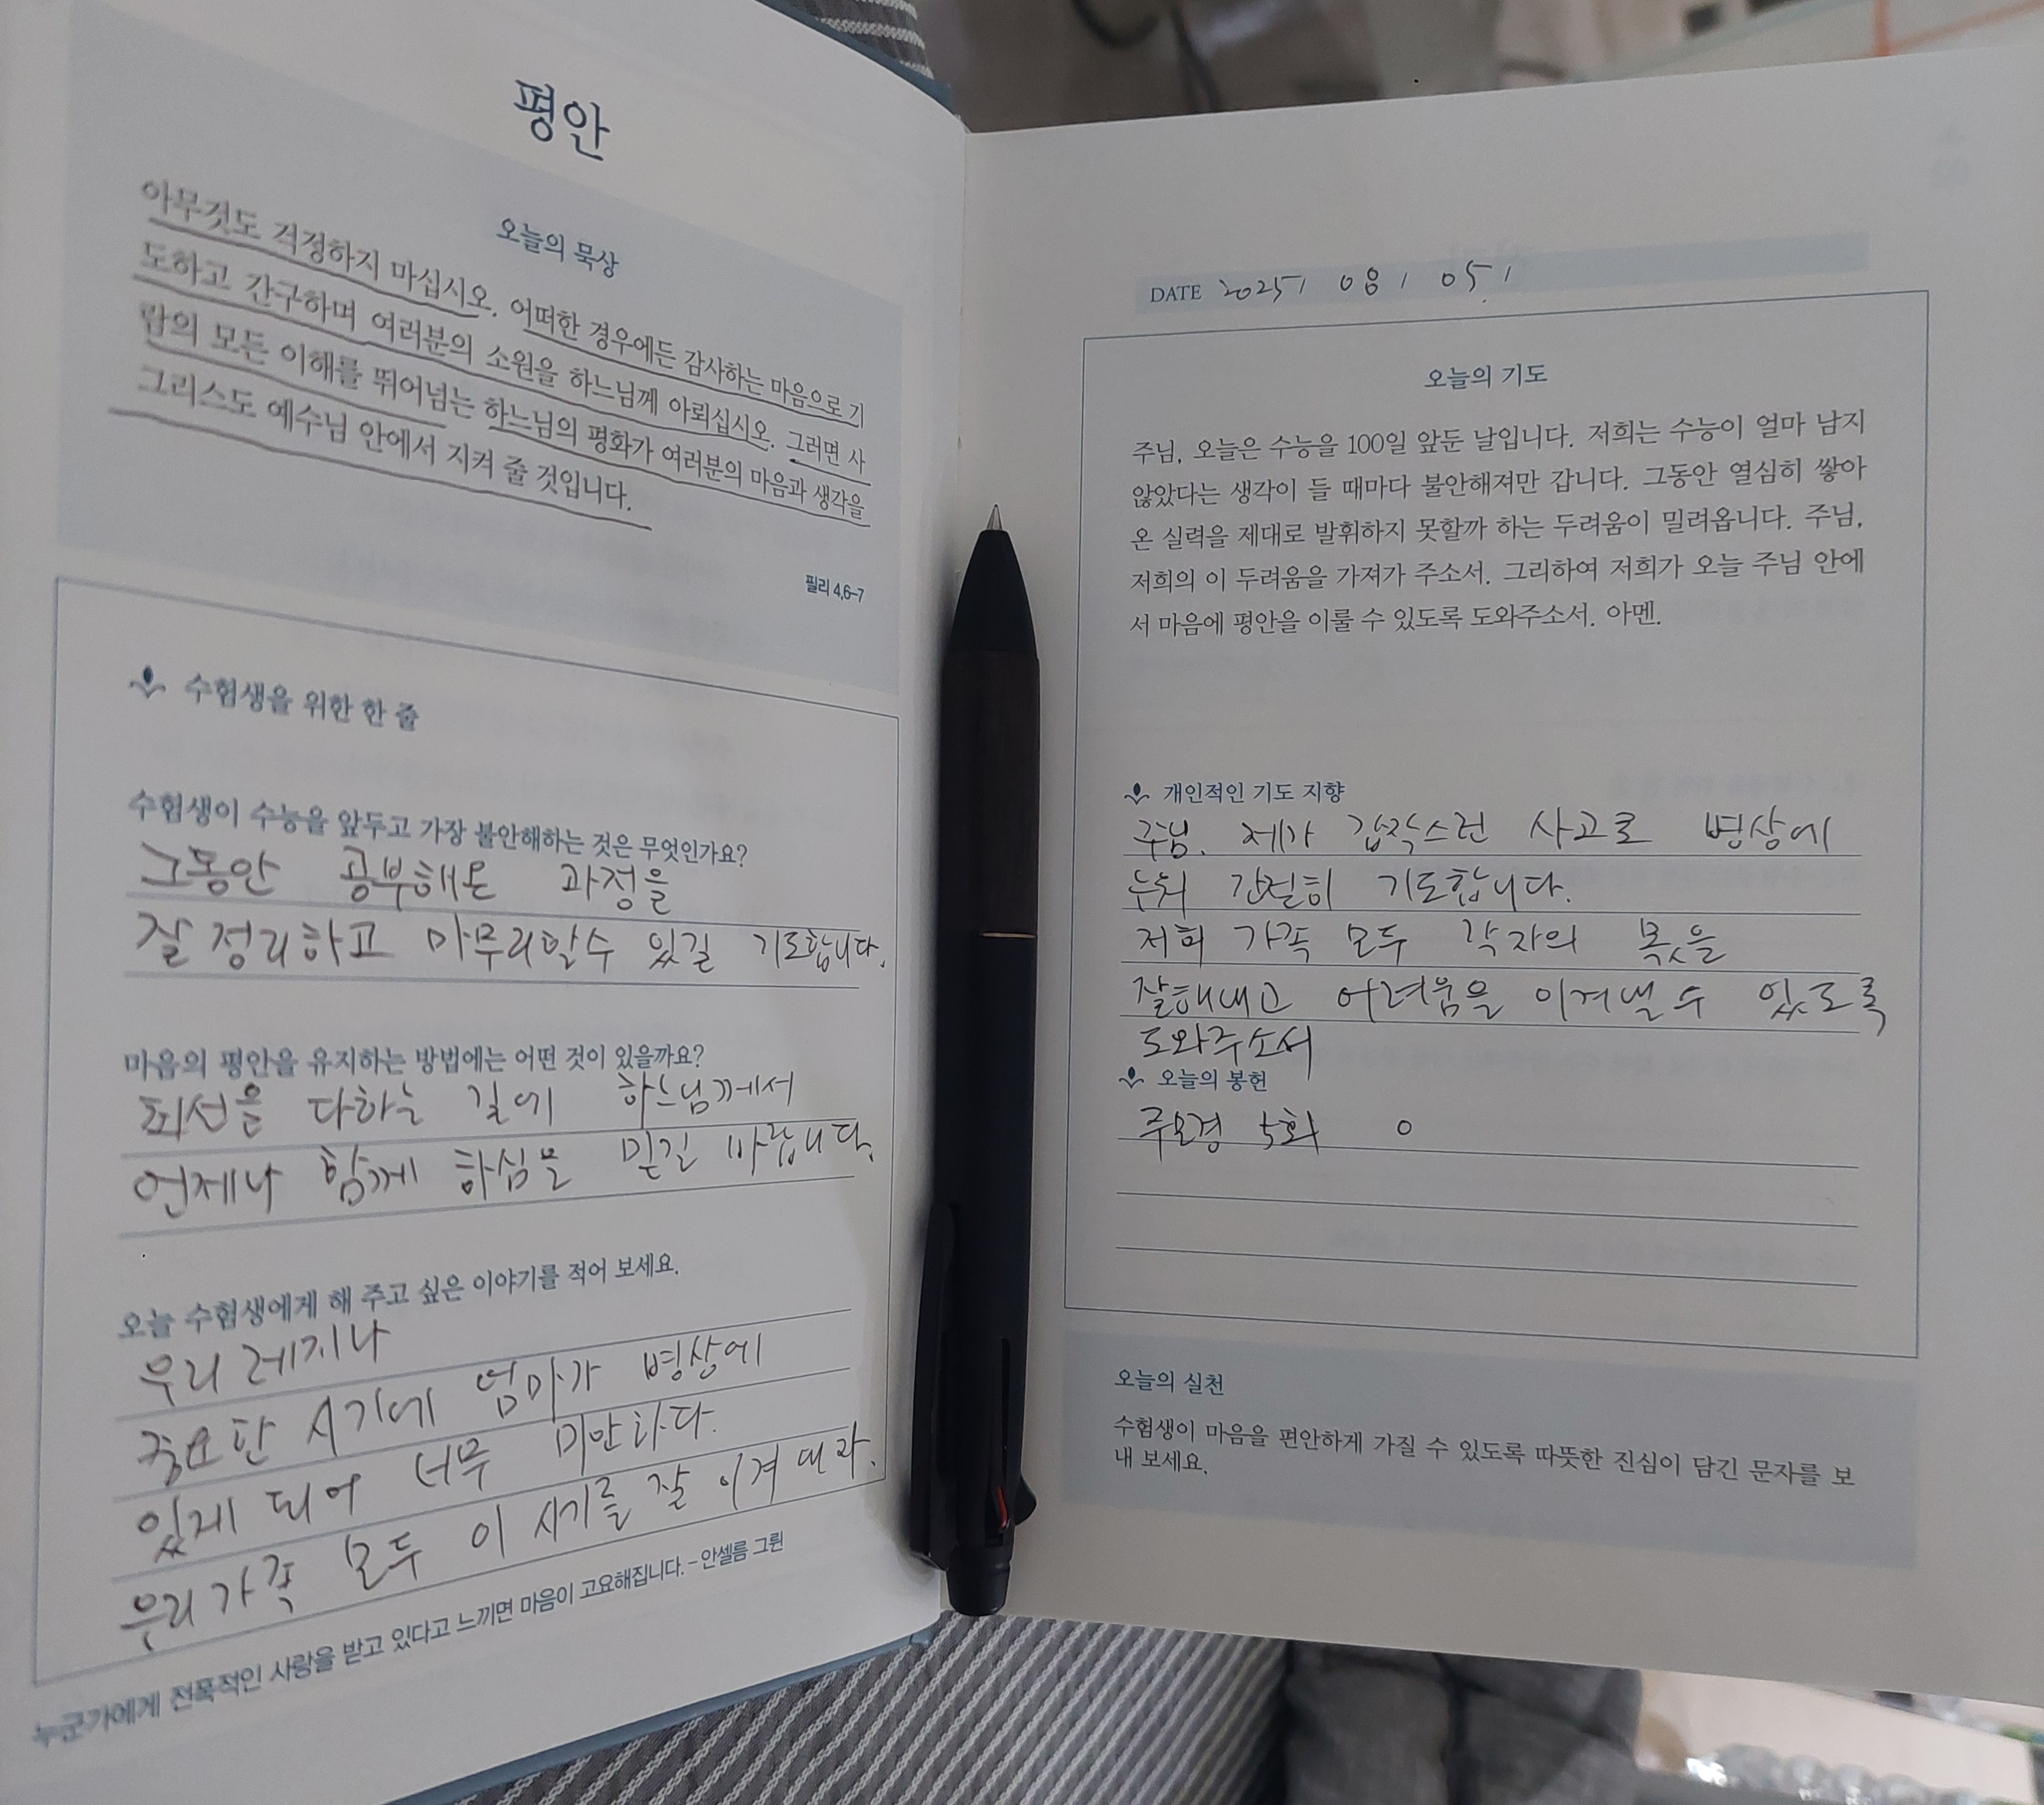 평안
오늘의 묵상
아무것도 걱정하지 마십시오. 어떠한 경우에든 감사하는 마음으로 기
도하고 간구하며 여러분의 소원을 하느님께 아뢰십시오. 그러면 사
람의 모든 이해를 뛰어넘는 하느님의 평화가 여러분의 마음과 생각을
그리스도 예수님 안에서 지켜 줄 것입니다.
필리 4,6-7
수험생을 위한 한 줄
수험생이 수능을 앞두고 가장 불안해하는 것은 무엇인가요?
그동안 공부해온 과정을
잘 정리하고 마무리할수 있길 기도합니다.
마음의 평안을 유지하는 방법에는 어떤 것이 있을까요?
최선을 다하는 길에 하느님께서
언제나 함께 하심을 믿길 바랍니다.
오늘 수험생에게 해 주고 싶은 이야기를 적어 보세요.
우리 레지나
중요한 시기에 엄마가 병상에
있게 되어 너무 미안하다.
우리가족 모두 이 시기를 잘 이겨내라.
누군가에게 전폭적인 사랑을 받고 있다고 느끼면 마음이 고요해집니다. - 안셀름 그륀
DATE 2025/ 08 / 05 /
오늘의 기도
주님, 오늘은 수능을 100일 앞둔 날입니다. 저희는 수능이 얼마 남지
않았다는 생각이 들 때마다 불안해져만 갑니다. 그동안 열심히 쌓아
온 실력을 제대로 발휘하지 못할까 하는 두려움이 밀려옵니다. 주님,
저희의 이 두려움을 가져가 주소서. 그리하여 저희가 오늘 주님 안에
서 마음에 평안을 이룰 수 있도록 도와주소서. 아멘.
개인적인 기도 지향
주님. 제가 갑작스런 사고로 병상에
누워 간절히 기도합니다.
저희 가족 모두 각자의 몫을
잘해내고 어려움을 이겨낼 수 있도록
도와주소서
오늘의 봉헌
주모경 5회 O
오늘의 실천
수험생이 마음을 편안하게 가질 수 있도록 따뜻한 진심이 담긴 문자를 보
내 보세요.